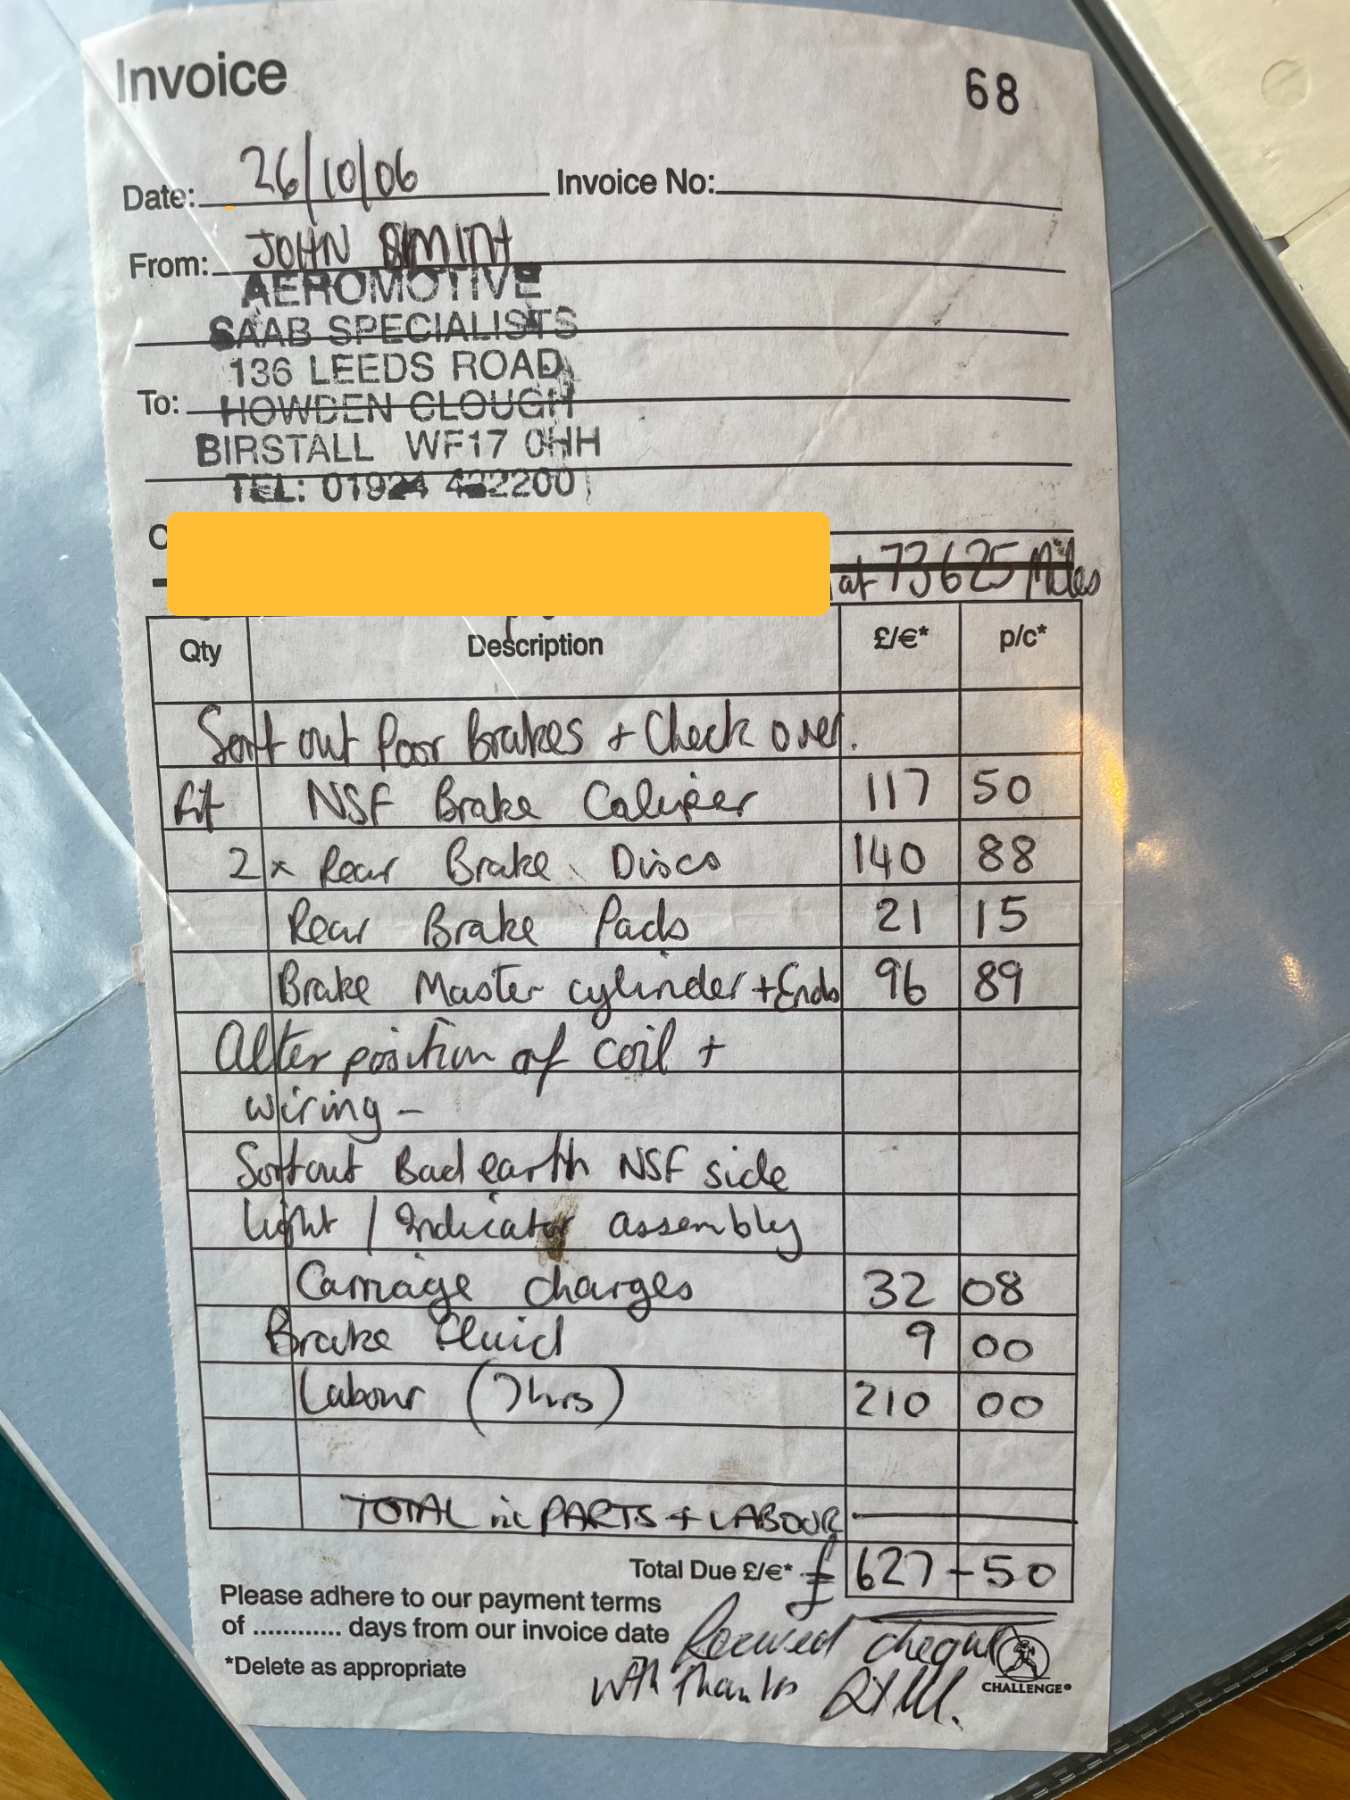 Invoice 68
Date: 26/10/06 Invoice No:
From: JOHN SMITH
AEROMOTIVE
SAAB SPECIALISTS
136 LEEDS ROAD
To: HOWDEN CLOUGH
BIRSTALL WF17 0HH
TEL: 01924 422200
at 73625 Miles
Qty Description £/€* p/c*
Sort out Poor Brakes + Check over.
Fit NSF Brake Caliper 117 50
2 x Rear Brake Discs 140 88
Rear Brake Pads 21 15
Brake Master cylinder + Ends 96 89
Alter position of coil +
wiring -
Sort out Bad earth NSF side
light / Indicator assembly
Carriage charges 32 08
Brake Fluid 9 00
Labour (7hrs) 210 00
TOTAL inc PARTS + LABOUR
Total Due £/€* £ 627 - 50
Please adhere to our payment terms
of ............ days from our invoice date
*Delete as appropriate
Received cheque
with Thanks
CHALLENGE®